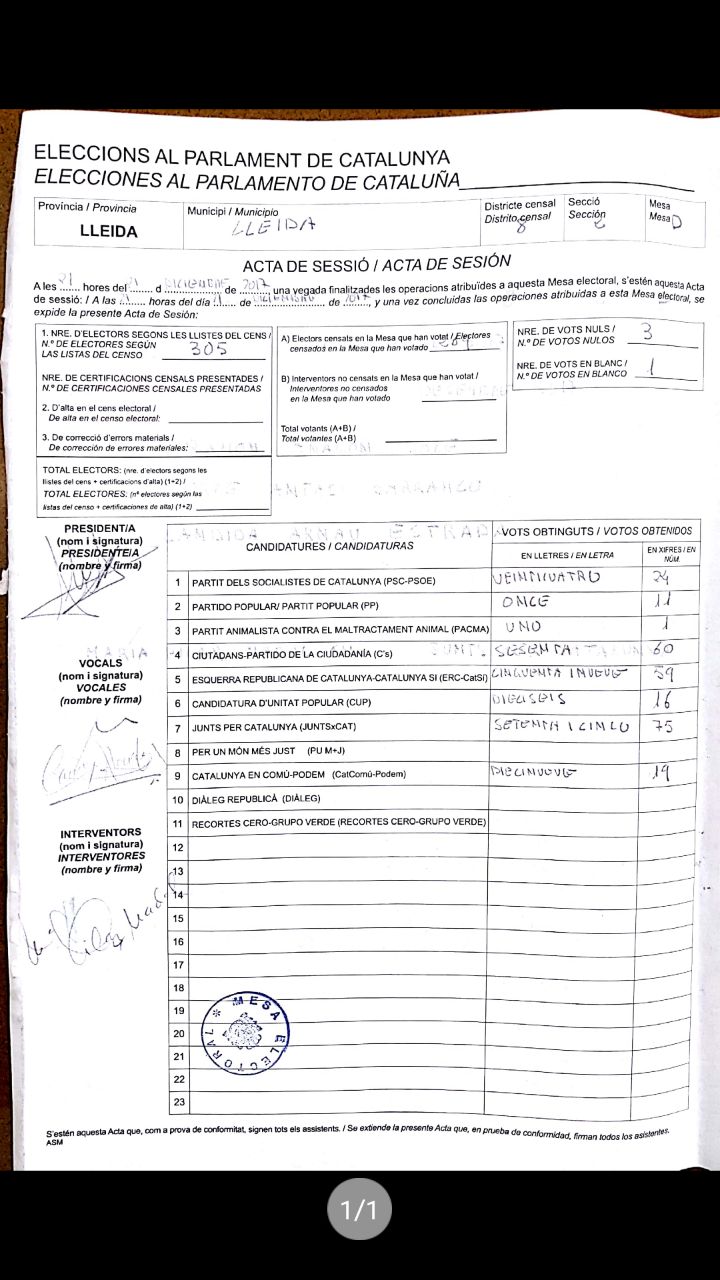 ELECCIONS AL PARLAMENT DE CATALUNYA
ELECCIONES AL PARLAMENTO DE CATALUÑA
Província / Provincia
LLEIDA
Municipi / Municipio
LLEIDA
Districte censal
Distrito censal
8
Secció
Sección
Mesa
Mesa D
ACTA DE SESSIÓ / ACTA DE SESIÓN
A les 21 hores del 21 d DICIEMBRE de 2017 una vegada finalitzades les operacions atribuïdes a aquesta Mesa electoral, s'estén aquesta Acta
de sessió: / A las horas del día de DICIEMBRE de 2017, y una vez concluidas las operaciones atribuidas a esta Mesa electoral, se
expide la presente Acta de Sesión:
1. NRE. D'ELECTORS SEGONS LES LLISTES DEL CENS /
N.º DE ELECTORES SEGÚN
LAS LISTAS DEL CENSO 305
NRE. DE CERTIFICACIONS CENSALS PRESENTADES /
N.º DE CERTIFICACIONES CENSALES PRESENTADAS
2. D'alta en el cens electoral /
De alta en el censo electoral:
3. De correcció d'errors materials /
De corrección de errores materiales:
TOTAL ELECTORS: (nre. d'electors segons les
llistes del cens + certificacions d'alta) (1+2) /
TOTAL ELECTORES: (nº electores según las
listas del censo + certificaciones de alta) (1+2)
A) Electors censats en la Mesa que han votat / Electores
censados en la Mesa que han votado
B) Interventors no censats en la Mesa que han votat /
Interventores no censados
en la Mesa que han votado
Total votants (A+B) /
Total votantes (A+B)
NRE. DE VOTS NULS /
N.º DE VOTOS NULOS 3
NRE. DE VOTS EN BLANC /
N.º DE VOTOS EN BLANCO 1
PRESIDENT/A
(nom i signatura)
PRESIDENTE/A
(nombre y firma)
VOCALS
(nom i signatura)
VOCALES
(nombre y firma)
INTERVENTORS
(nom i signatura)
INTERVENTORES
(nombre y firma)
CANDIDATURES / CANDIDATURAS
VOTS OBTINGUTS / VOTOS OBTENIDOS
EN LLETRES / EN LETRA
EN XIFRES / EN
NÚM.
1 PARTIT DELS SOCIALISTES DE CATALUNYA (PSC-PSOE) VEINTICUATRO 24
2 PARTIDO POPULAR/ PARTIT POPULAR (PP) ONCE 11
3 PARTIT ANIMALISTA CONTRA EL MALTRACTAMENT ANIMAL (PACMA) UNO 1
4 CIUTADANS-PARTIDO DE LA CIUDADANÍA (C's) SESENTA 60
5 ESQUERRA REPUBLICANA DE CATALUNYA-CATALUNYA SÍ (ERC-CatSí) CINQUENTA INUEVE 59
6 CANDIDATURA D'UNITAT POPULAR (CUP) DIECISEIS 16
7 JUNTS PER CATALUNYA (JUNTSxCAT) SETENTA I CINCO 75
8 PER UN MÓN MÉS JUST (PU M+J)
9 CATALUNYA EN COMÚ-PODEM (CatComú-Podem) DIECINUEVE 19
10 DIÀLEG REPUBLICÀ (DIÀLEG)
11 RECORTES CERO-GRUPO VERDE (RECORTES CERO-GRUPO VERDE)
12
13
14
15
16
17
18
19
20
21
22
23
* MESA ELECTORAL
S'estén aquesta Acta que, com a prova de conformitat, signen tots els assistents. / Se extiende la presente Acta que, en prueba de conformidad, firman todos los asistentes.
ASM
1/1